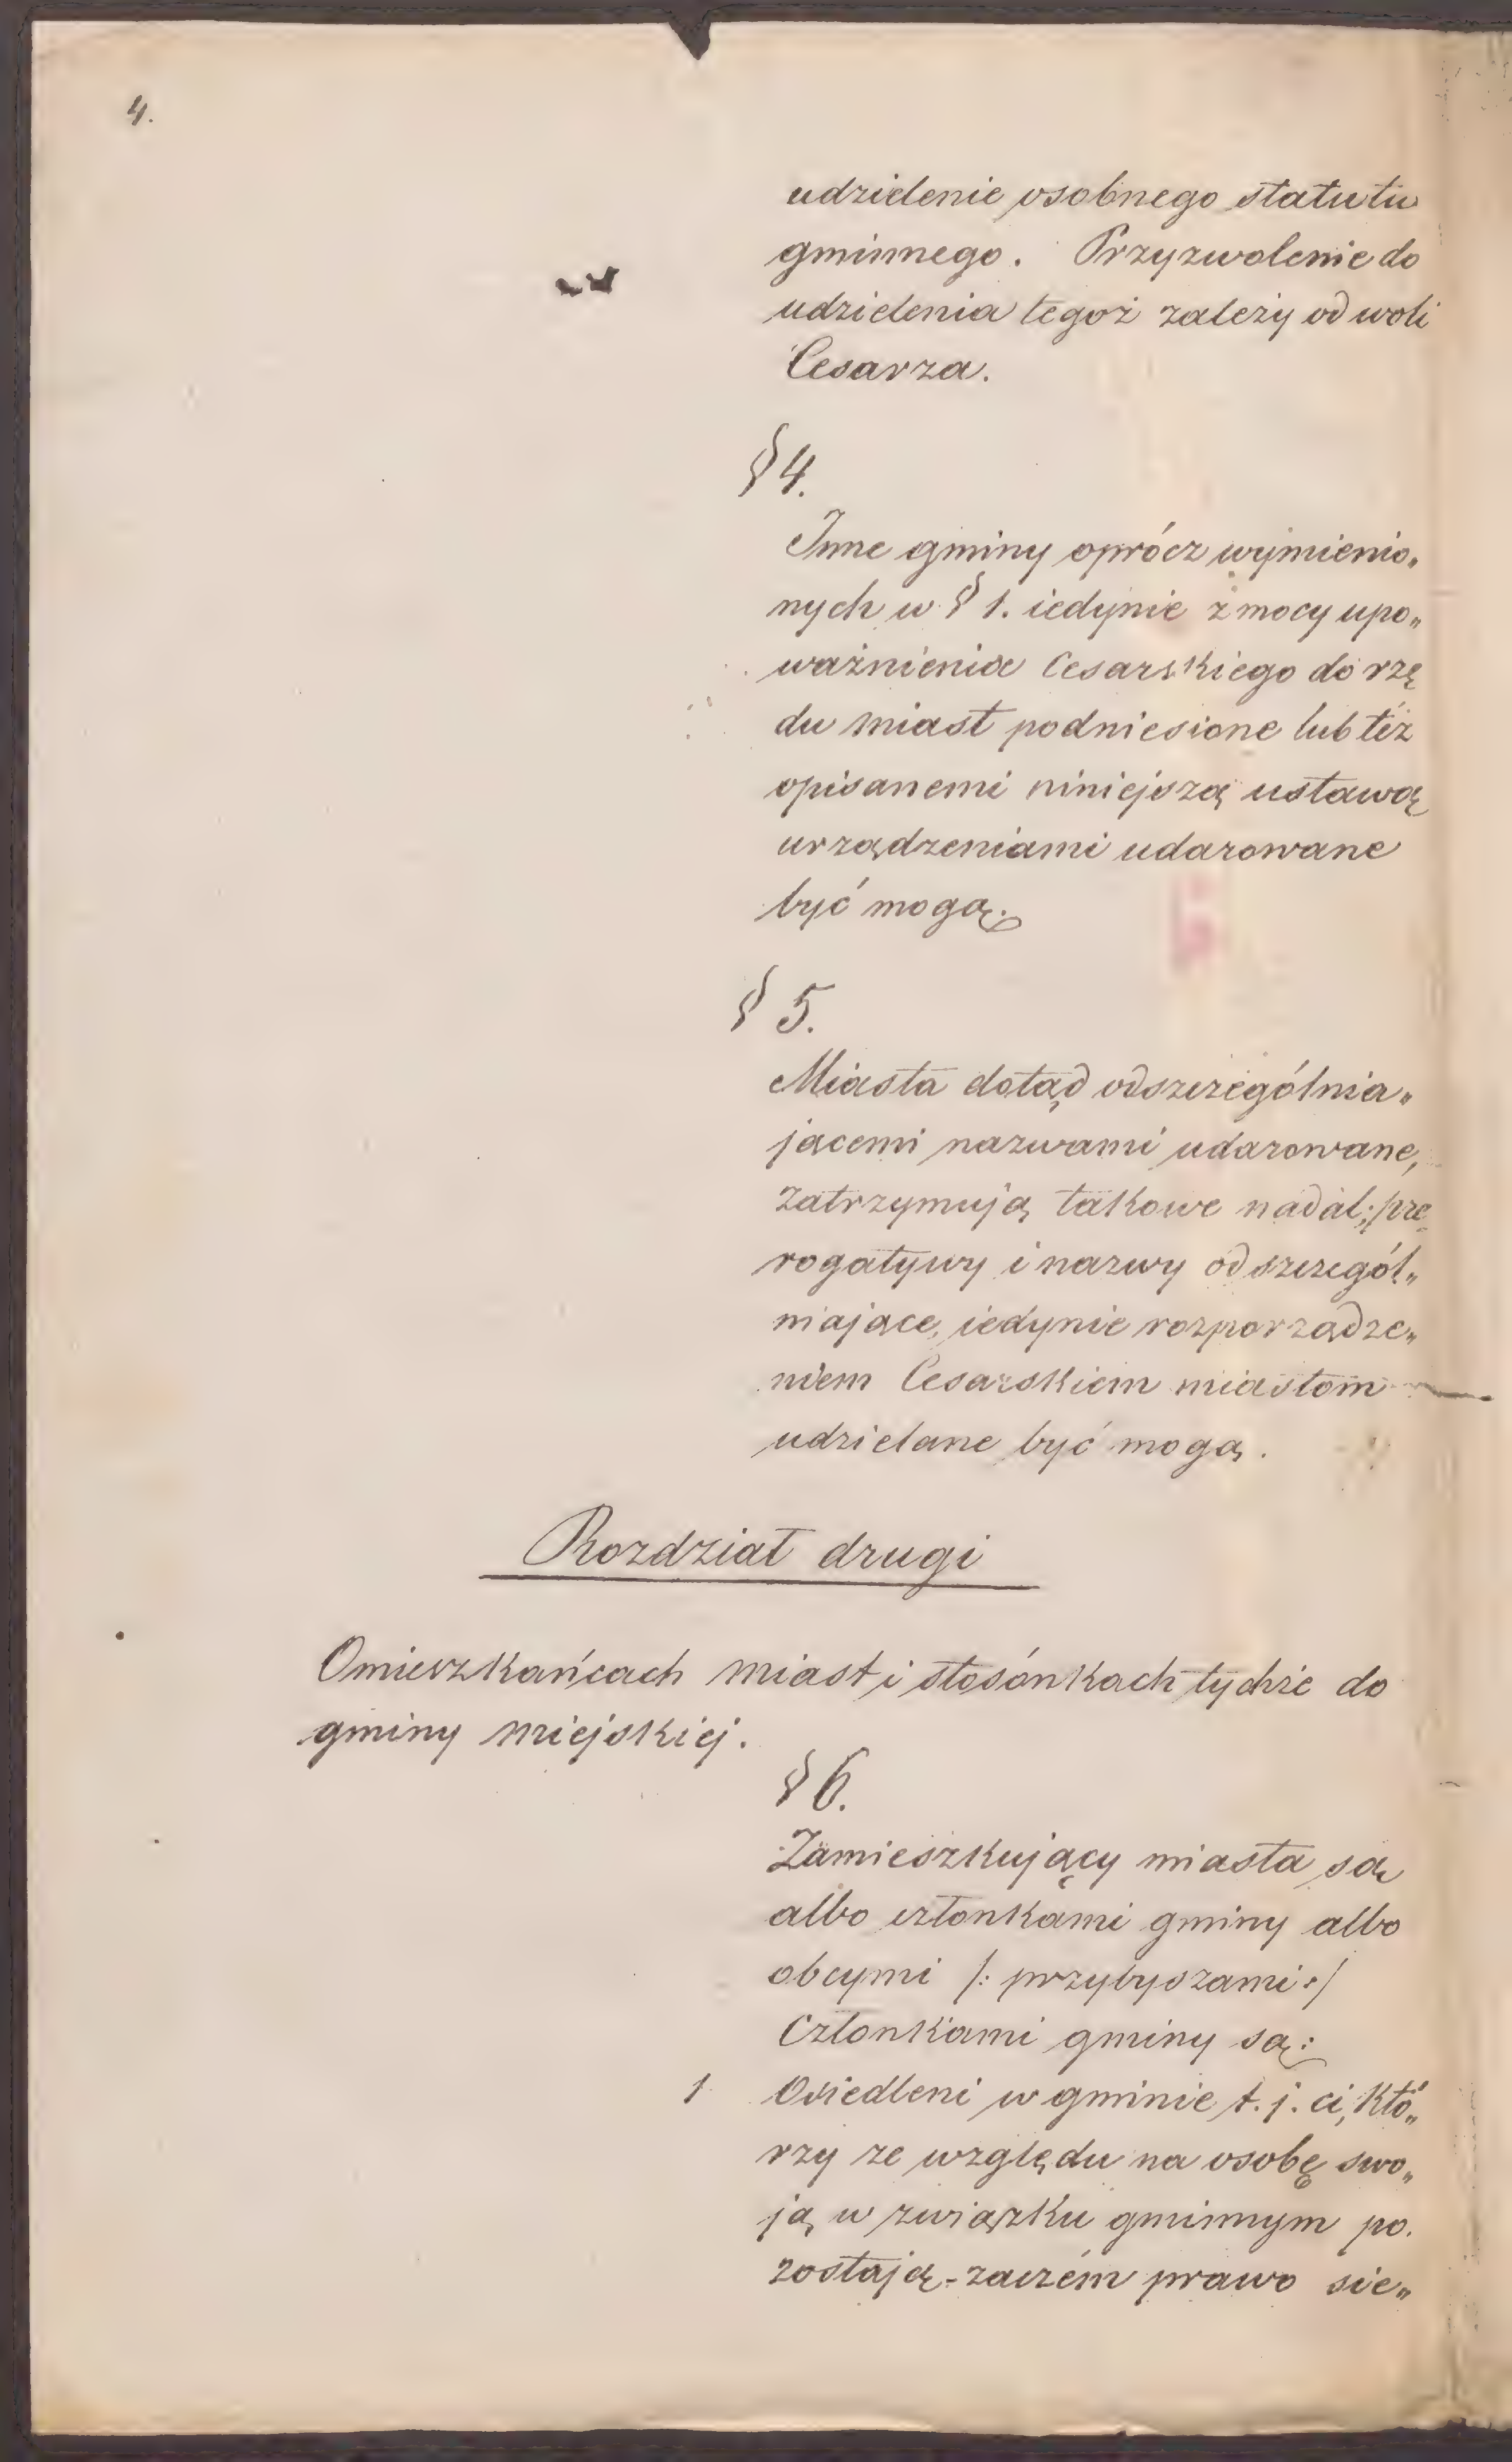 4.
udzielenie osobnego statutu
gminnego. Przyzwolenie do
udzielenia tegoż zależy od woli
Cesarza.
§ 4.
Inne gminy oprócz wymienio„
nych w § 1. iedynie z mocy upo„
ważnienia Cesarskiego do rzę
du miast podniesione lub téż
opisanemi niniejszą ustawą
urządzeniami udarowane
być mogą.
§ 5.
Miasta dotąd odszczególnia„
jącemi nazwami udarowane,
zatrzymują takowe nadal; pre
rogatywy i nazwy odszczegól„
niające, iedynie rozporządze„
niem Cesarskiem miastom
udzielane być mogą.
Rozdział drugi
O mieszkańcach miast i stosónkach tychże do
gminy miejskiej.
§ 6.
Zamieszkujący miasta są
albo członkami gminy albo
obcymi /: przybyszami :/
Członkami gminy są:
1 Osiedleni w gminie t. j. ci, któ„
rzy ze względu na osobę swo„
ją w związku gminnym po.
zostają - zaczém prawo sie„